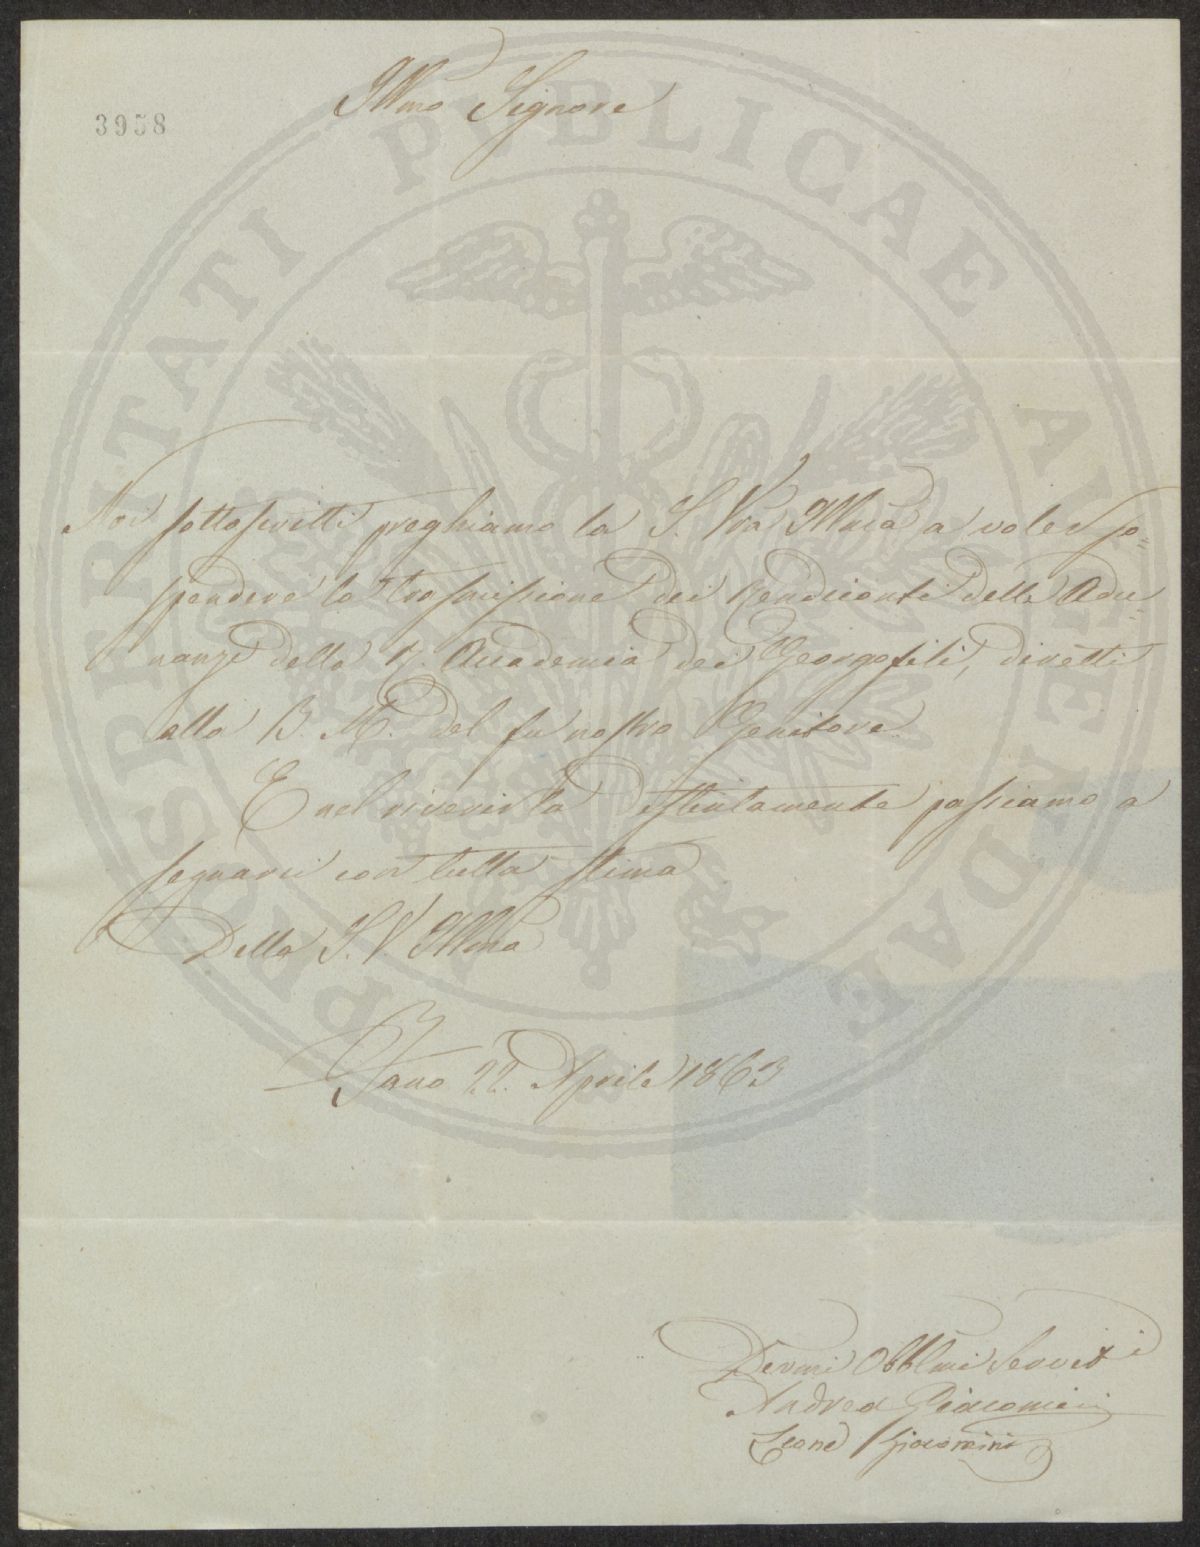 3958
Illmo Signore
Noi sottoscritti preghiamo la S. Vra Illma a voler so„
spendere la trasmissione dei Rendiconti delle Adu„
nanze della R. Accademia dei Georgofili, diretti
alla B. M. del fu nostro Genitore.
E nel riverirla distintamente passiamo a
segnarci con tutta stima
Della S. V. Illma
Fano 22. Aprile 1863
Devmi Obblmi Servit i
Andrea Giacomini
Leone Giacomini
PROSPERITATI PVBLICAE AVGENDAE